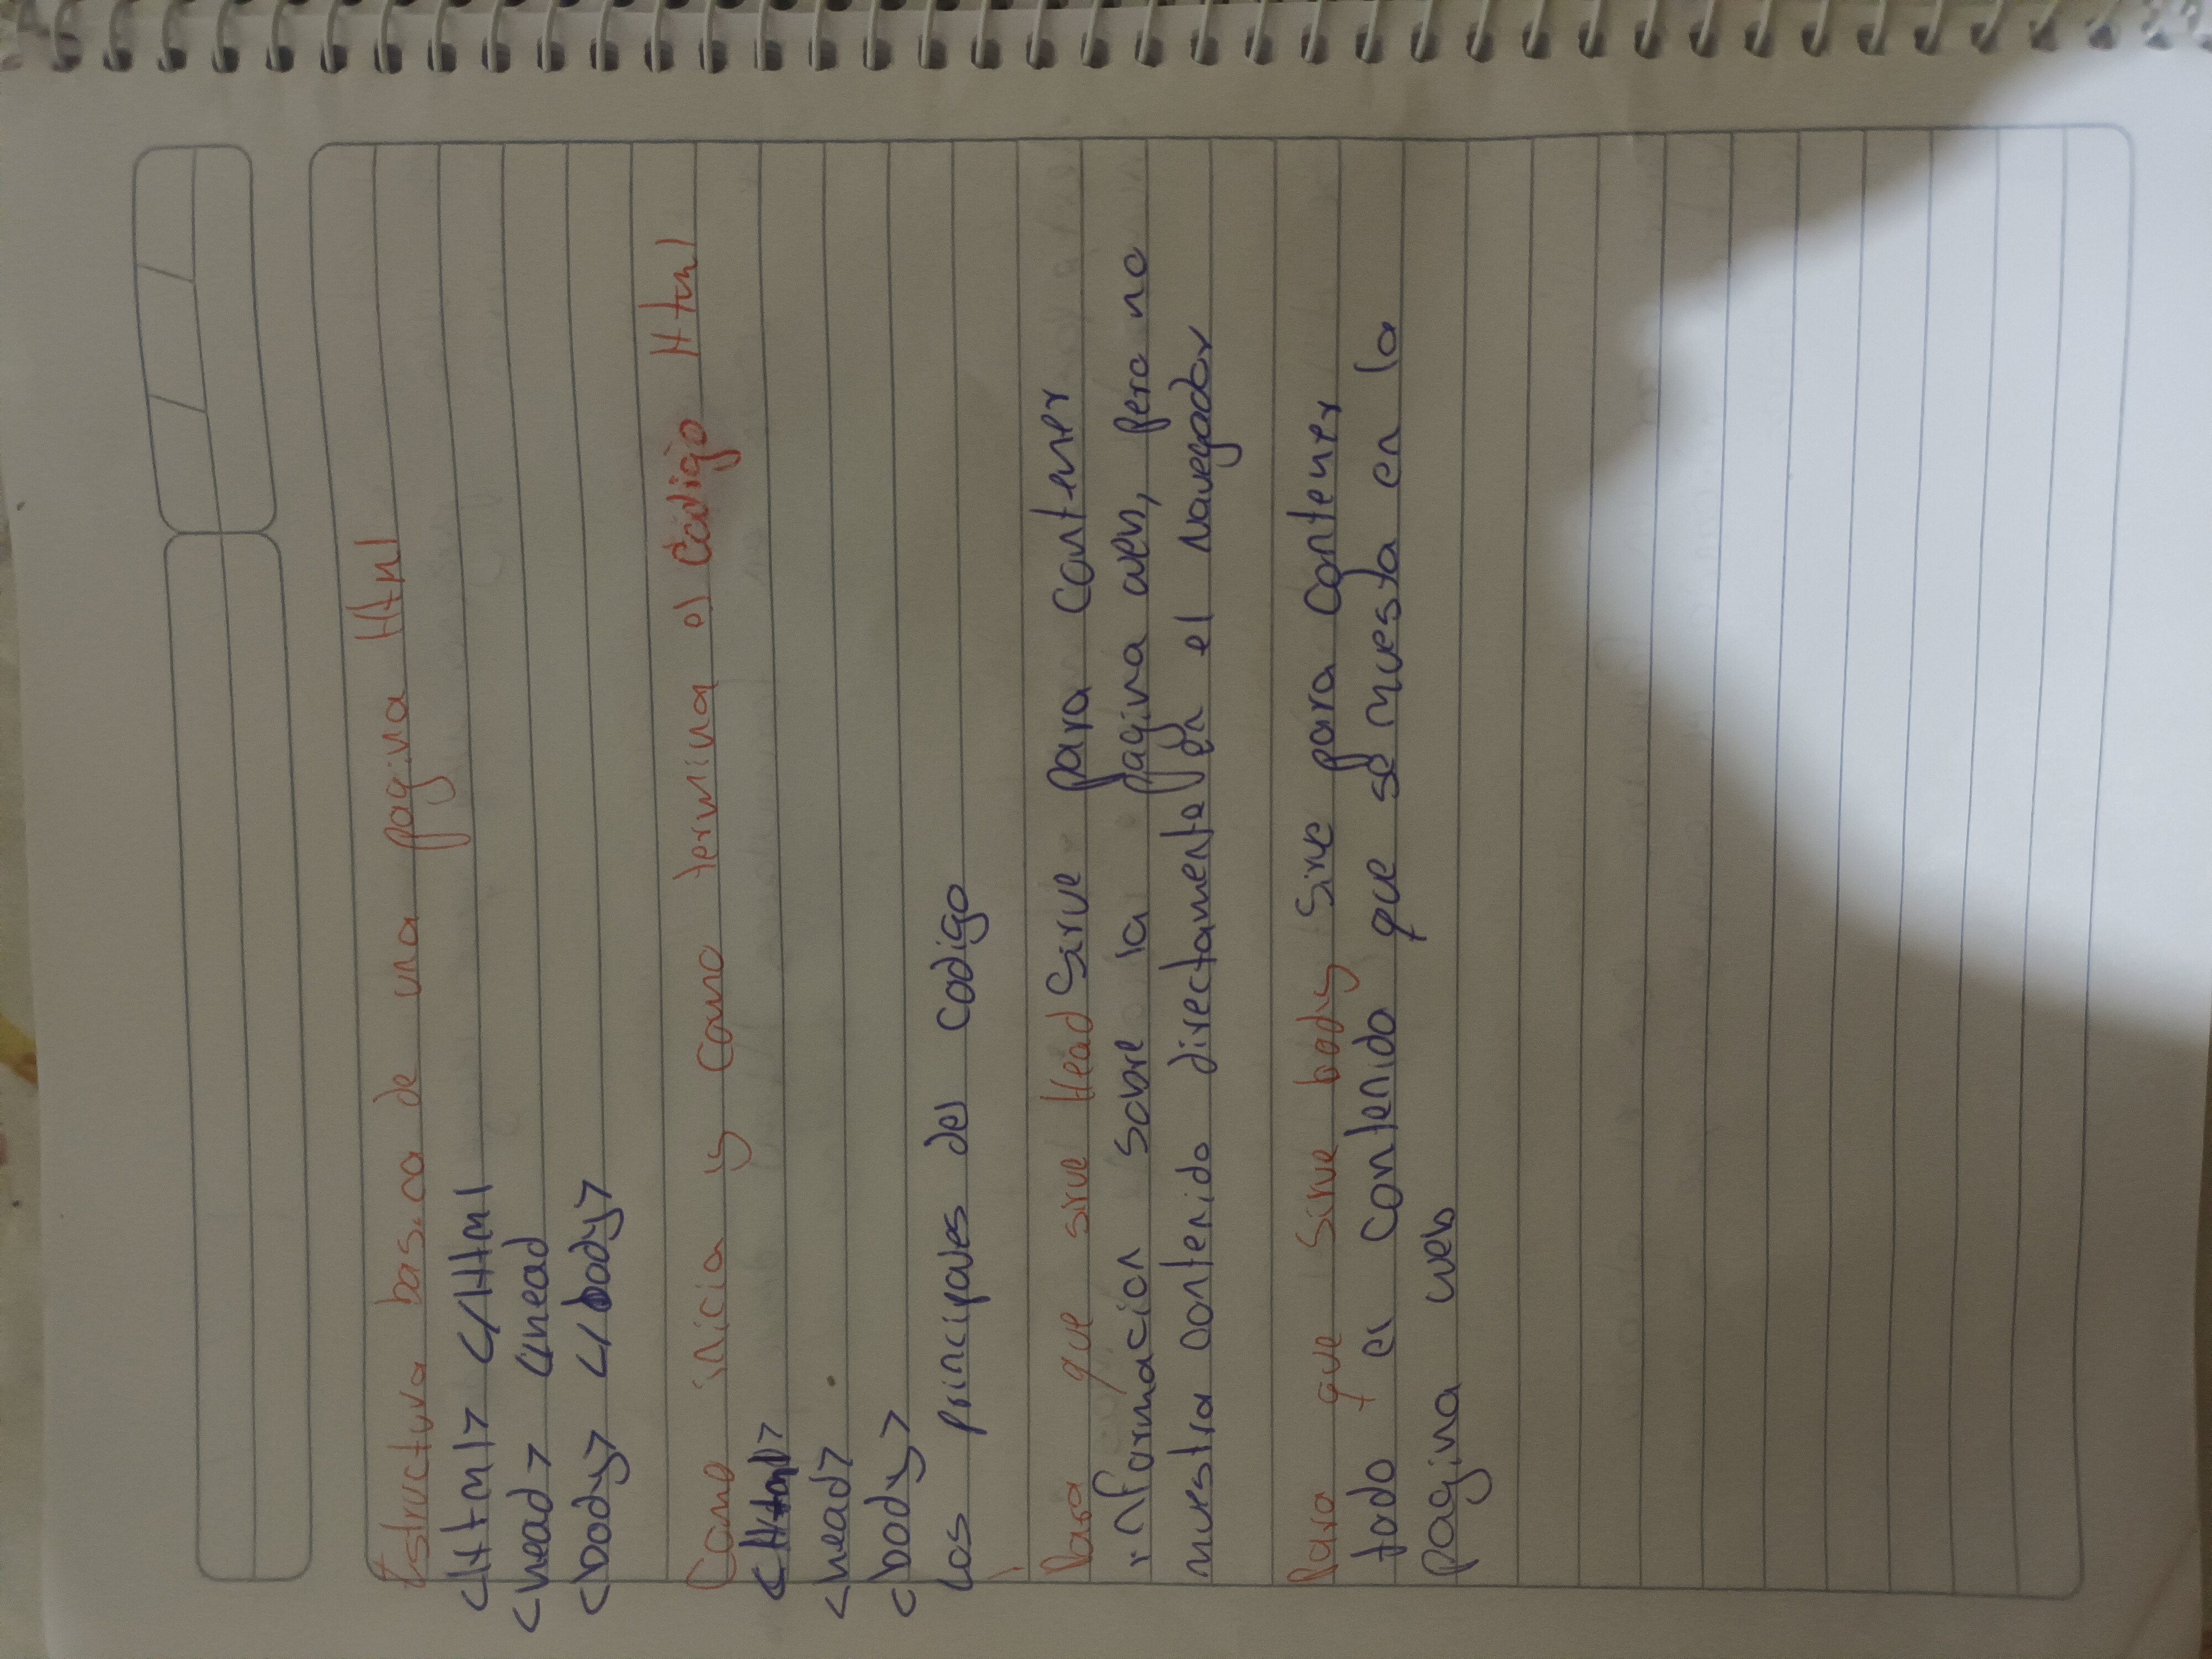 Estructura basica de una pagina Html
<Html> </Html
<head> </head
<body> </body>
Como inicia y como termina el Codigo Html
<Html>
<head>
<body>
Los principales del codigo
Para que sirve Head Sirve para Contener
informacion sobre la pagina web, pero no
muestra contenido directamente en el Navegador
Para que sirve body Sirve para Contener
todo el contenido que se muesta en la
Pagina web